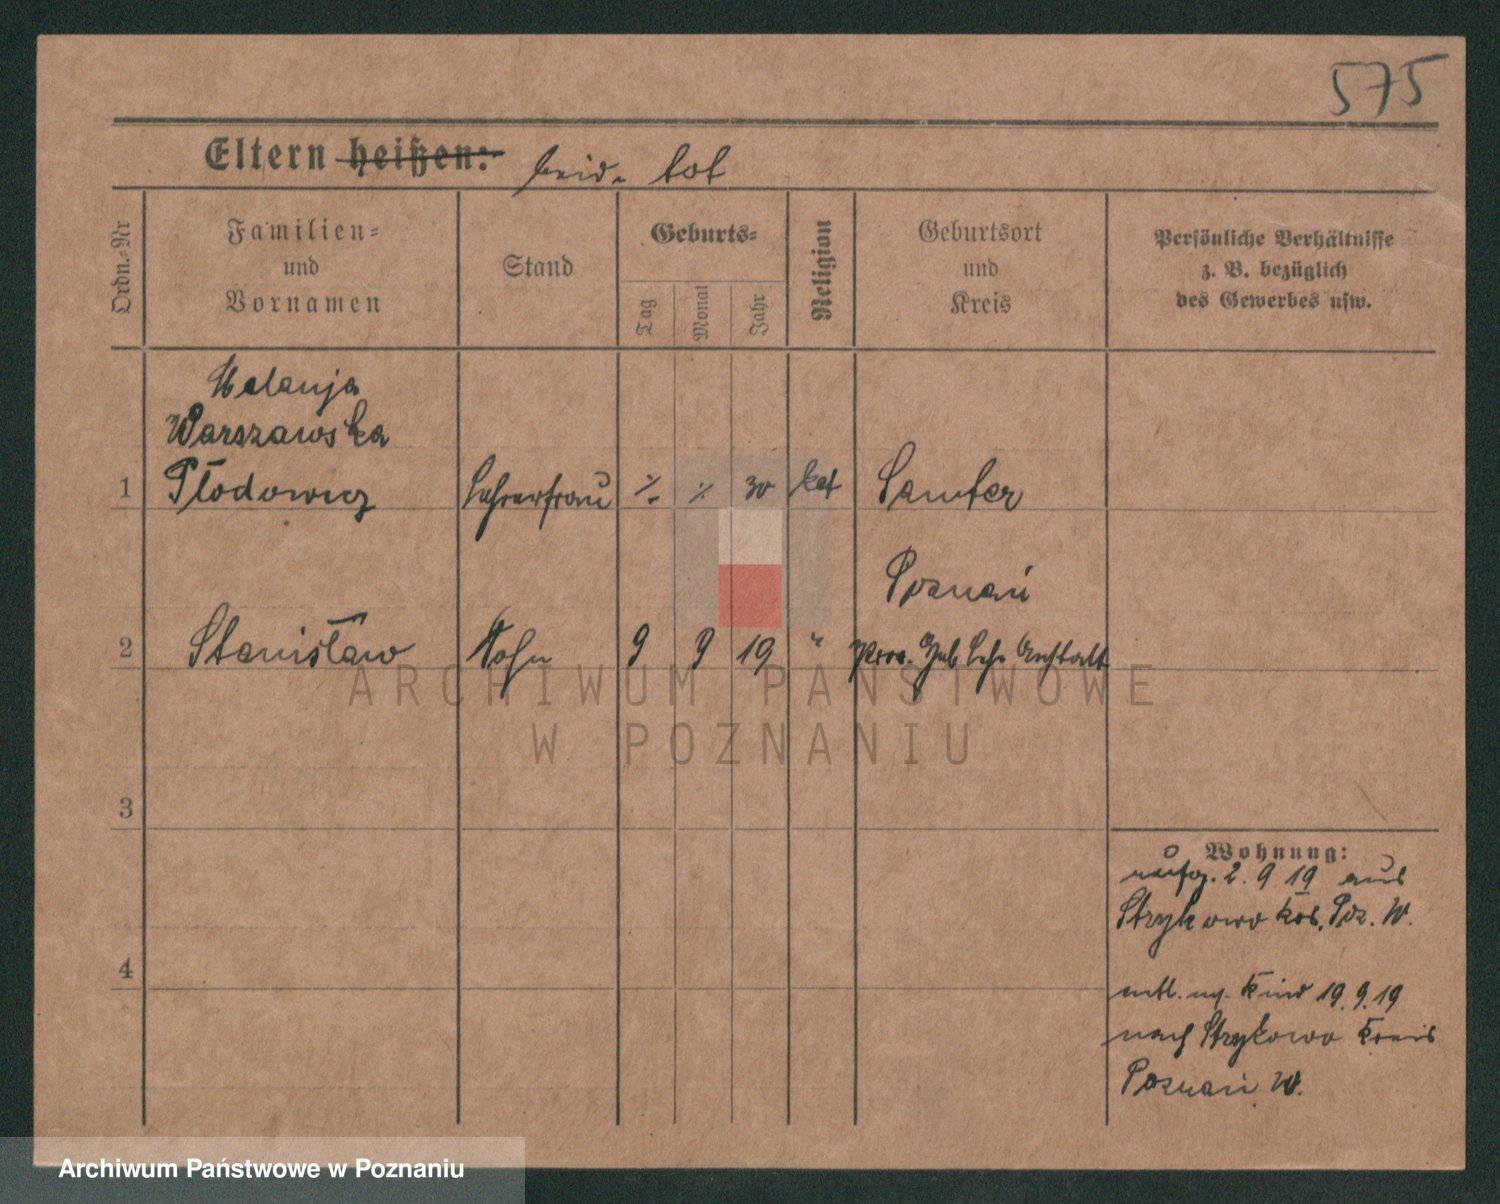 575
Eltern heißen: beide tot
Ordn.-Nr
Familien-
und
Vornamen
Stand
Geburts-
Tag
Monat
Jahr
Religion
Geburtsort
und
Kreis
Persönliche Verhältnisse
z. B. bezüglich
des Gewerbes usw.
Melanja
Warszawska
1 Płodowicz Lehrerfrau ٪ ٪ 30 kat Samter
Poznań
2 Stanisław Sohn 9 9 19 " Prov. Heb Lehr Anstalt
3
4
Wohnung:
aufg. 2. 9 19 aus
Strykowo Krs. Poz. W.
entl. m. Kind 19.9.19
nach Strykowo Kreis
Poznań W.
ARCHIWUM PAŃSTWOWE
W POZNANIU
Archiwum Państwowe w Poznaniu